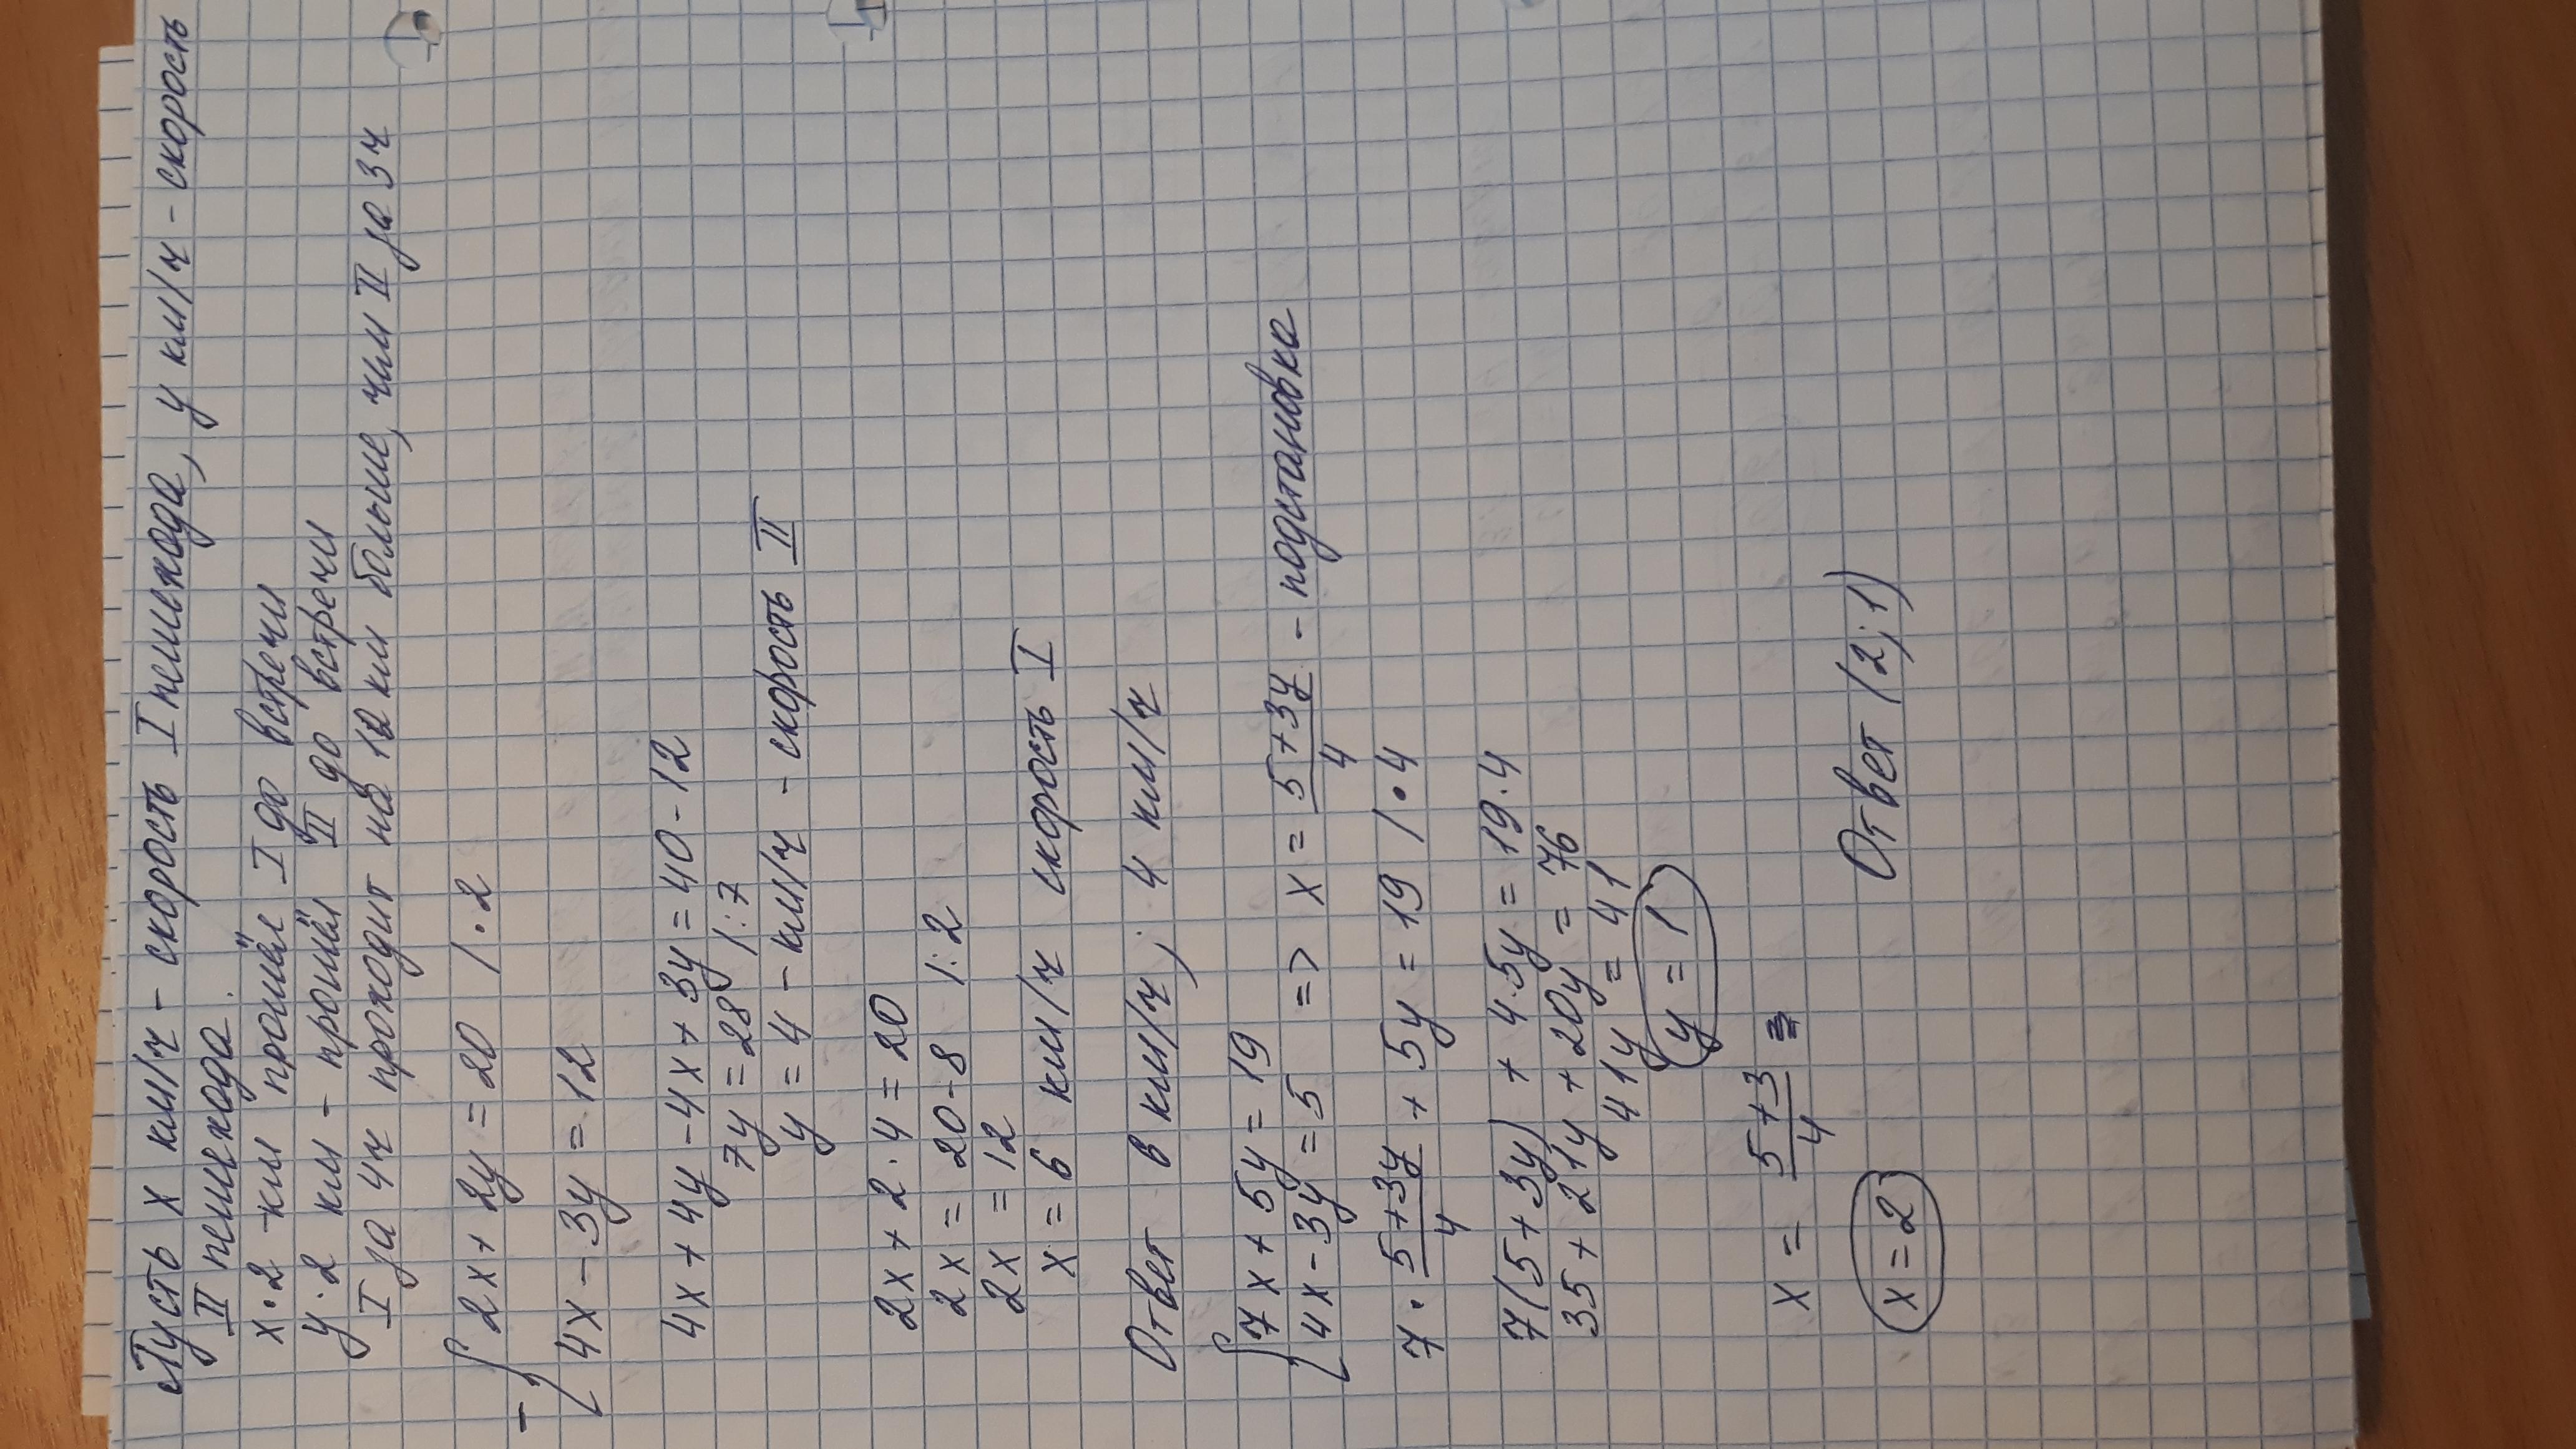 Пусть х км/ч - скорость I пешехода, у км/ч - скорость
II пешехода.
х·2 - км прошёл I до встречи
у·2 км - прошёл II до встречи
I за 4ч проходит на 12 км больше, чем II за 3ч
2х + 2у = 20 |·2
-
4х - 3у = 12
4х + 4у - 4х + 3у = 40 - 12
7у = 28 |:7
у = 4 - км/ч - скорость II
2х + 2·4 = 20
2х = 20 - 8 |:2
2х = 12
х = 6 км/ч скорость I
Ответ 6 км/ч; 4 км/ч
7х + 5у = 19
4х - 3у = 5 => х = (5+3у)/4 - подстановка
7 · (5+3у)/4 + 5у = 19 |·4
7(5+3у) + 4·5у = 19·4
35 + 21у + 20у = 76
41у = 41
у = 1
х = (5+3)/4 =
х = 2 Ответ (2; 1)